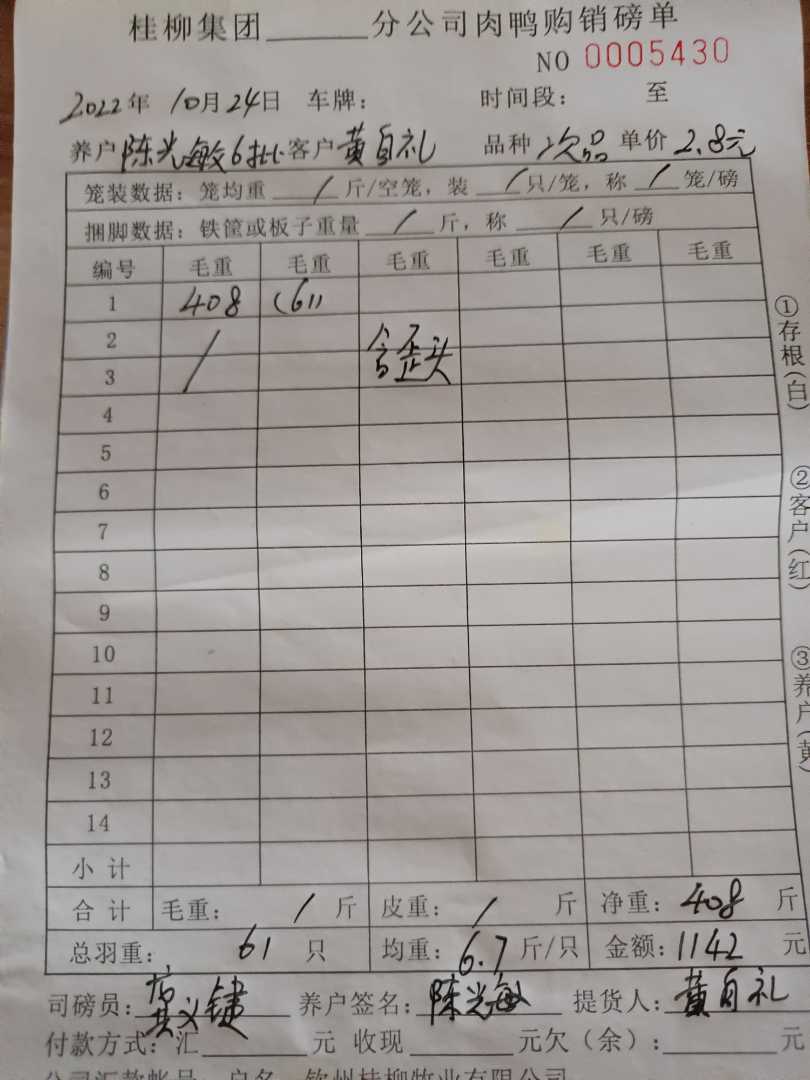 桂柳集团______分公司肉鸭购销磅单
NO 0005430
2022年 10月24日 车牌: 时间段: 至
养户陈光敏6批客户黄自礼 品种次品 单价2.8元
笼装数据: 笼均重 / 斤/空笼, 装 / 只/笼, 称 / 笼/磅
捆脚数据: 铁筐或板子重量 / 斤, 称 / 只/磅
编号 毛重 毛重 毛重 毛重 毛重 毛重
1 408 (61)
2 /
3 / 含歪头
4
5
6
7
8
9
10
11
12
13
14
小计
合计 毛重: / 斤 皮重: / 斤 净重: 408 斤
总羽重: 61 只 均重: 6.7斤/只 金额: 1142 元
司磅员: 养户签名: 陈光敏 提货人: 黄自礼
付款方式: 汇______元 收现______元欠(余):______元
公司汇款帐号 户名 钦州桂柳牧业有限公司
①存根(白) ②客户(红) ③养户(黄)